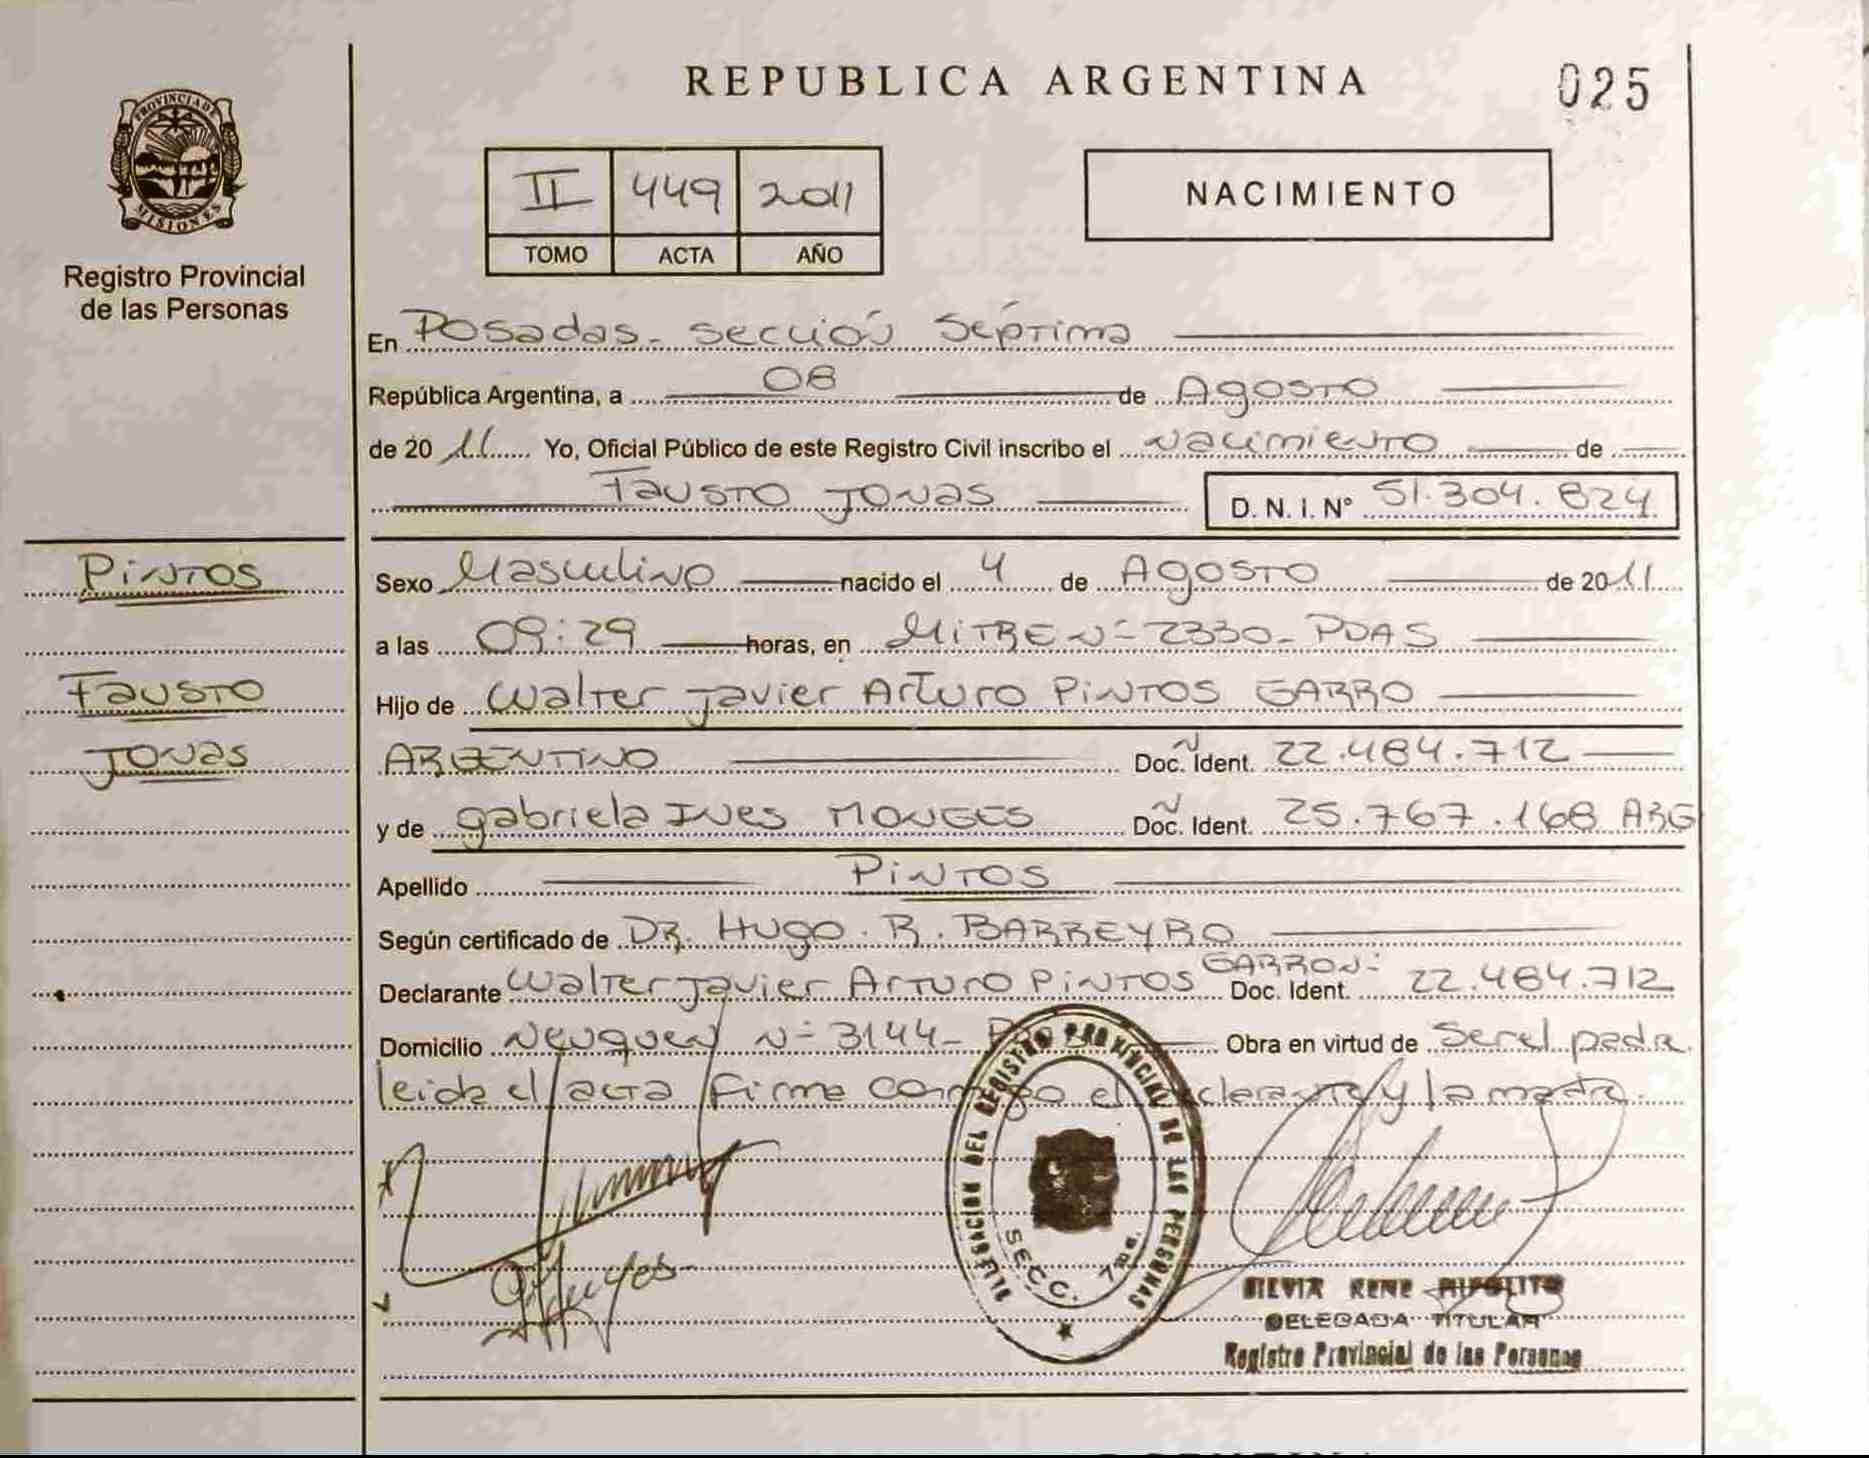 REPUBLICA ARGENTINA
025
PROVINCIA DE
MISIONES
Registro Provincial
de las Personas
II 449 2011
TOMO ACTA AÑO
NACIMIENTO
En Posadas - Sección Séptima
República Argentina, a 08 de Agosto
de 2011 Yo, Oficial Público de este Registro Civil inscribo el Nacimiento de
Fausto Jonas D. N. I. N° 51.304.824
Pintos
Fausto
Jonas
Sexo Masculino nacido el 4 de Agosto de 2011
a las 09:29 horas, en Mitre Nº 2330 - PDAS
Hijo de Walter Javier Arturo Pintos GARRO
ARGENTINO Doc. Ident. Nº 22.484.712
y de gabriela Ines MONGES Doc. Ident. Nº 25.767.168 ARG
Apellido Pintos
Según certificado de DR. Hugo R. BARREYRO
Declarante Walter Javier Arturo Pintos GARRO Nº Doc. Ident. 22.484.712
Domicilio Neuquen Nº 3144 - Obra en virtud de Ser el padre
leida el acta firma conmigo el declarante y la madre.
DELEGACION DEL REGISTRO PROVINCIAL DE LAS PERSONAS
SECC. 7ma.
SILVIA RENE HIPOLITO
DELEGADA TITULAR
Registro Provincial de las Personas